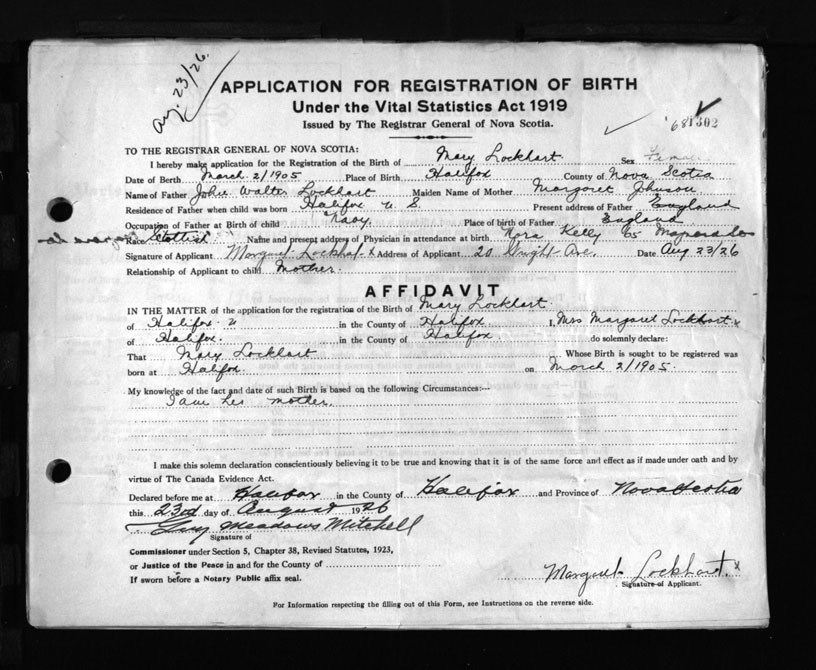 Aug. 23/26.
APPLICATION FOR REGISTRATION OF BIRTH
Under the Vital Statistics Act 1919
Issued by The Registrar General of Nova Scotia.
TO THE REGISTRAR GENERAL OF NOVA SCOTIA:
I hereby make application for the Registration of the Birth of Mary Lockhart Sex Female
Date of Birth March 2/1905 Place of Birth Halifax County of Nova Scotia
Name of Father John Walter Lockhart Maiden Name of Mother Margaret Johnson
Residence of Father when child was born Halifax N. S. Present address of Father England
Occupation of Father at Birth of child Navy. Place of birth of Father England
Race Scottish Name and present address of Physician in attendance at birth Nora Kelly 65
Signature of Applicant Margaret Lockhart x Address of Applicant 20 Wright Ave. Date Aug 23/26
Relationship of Applicant to child Mother.
AFFIDAVIT
IN THE MATTER of the application for the registration of the Birth of Mary Lockhart
of Halifax in the County of Halifax I, Mrs Margaret Lockhart x
of Halifax. in the County of Halifax do solemnly declare:
That Mary Lockhart Whose Birth is sought to be registered was
born at Halifax on March 2/1905.
My knowledge of the fact and date of such Birth is based on the following Circumstances:—
I am her mother.
I make this solemn declaration conscientiously believing it to be true and knowing that it is of the same force and effect as if made under oath and by
virtue of The Canada Evidence Act.
Declared before me at Halifax in the County of Halifax and Province of Nova Scotia
this 23rd day of August 1926
Guy Meadows Mitchell
Signature of
Commissioner under Section 5, Chapter 38, Revised Statutes, 1923,
or Justice of the Peace in and for the County of
If sworn before a Notary Public affix seal.
Margaret Lockhart. x
Signature of Applicant.
For Information respecting the filling out of this Form, see Instructions on the reverse side.